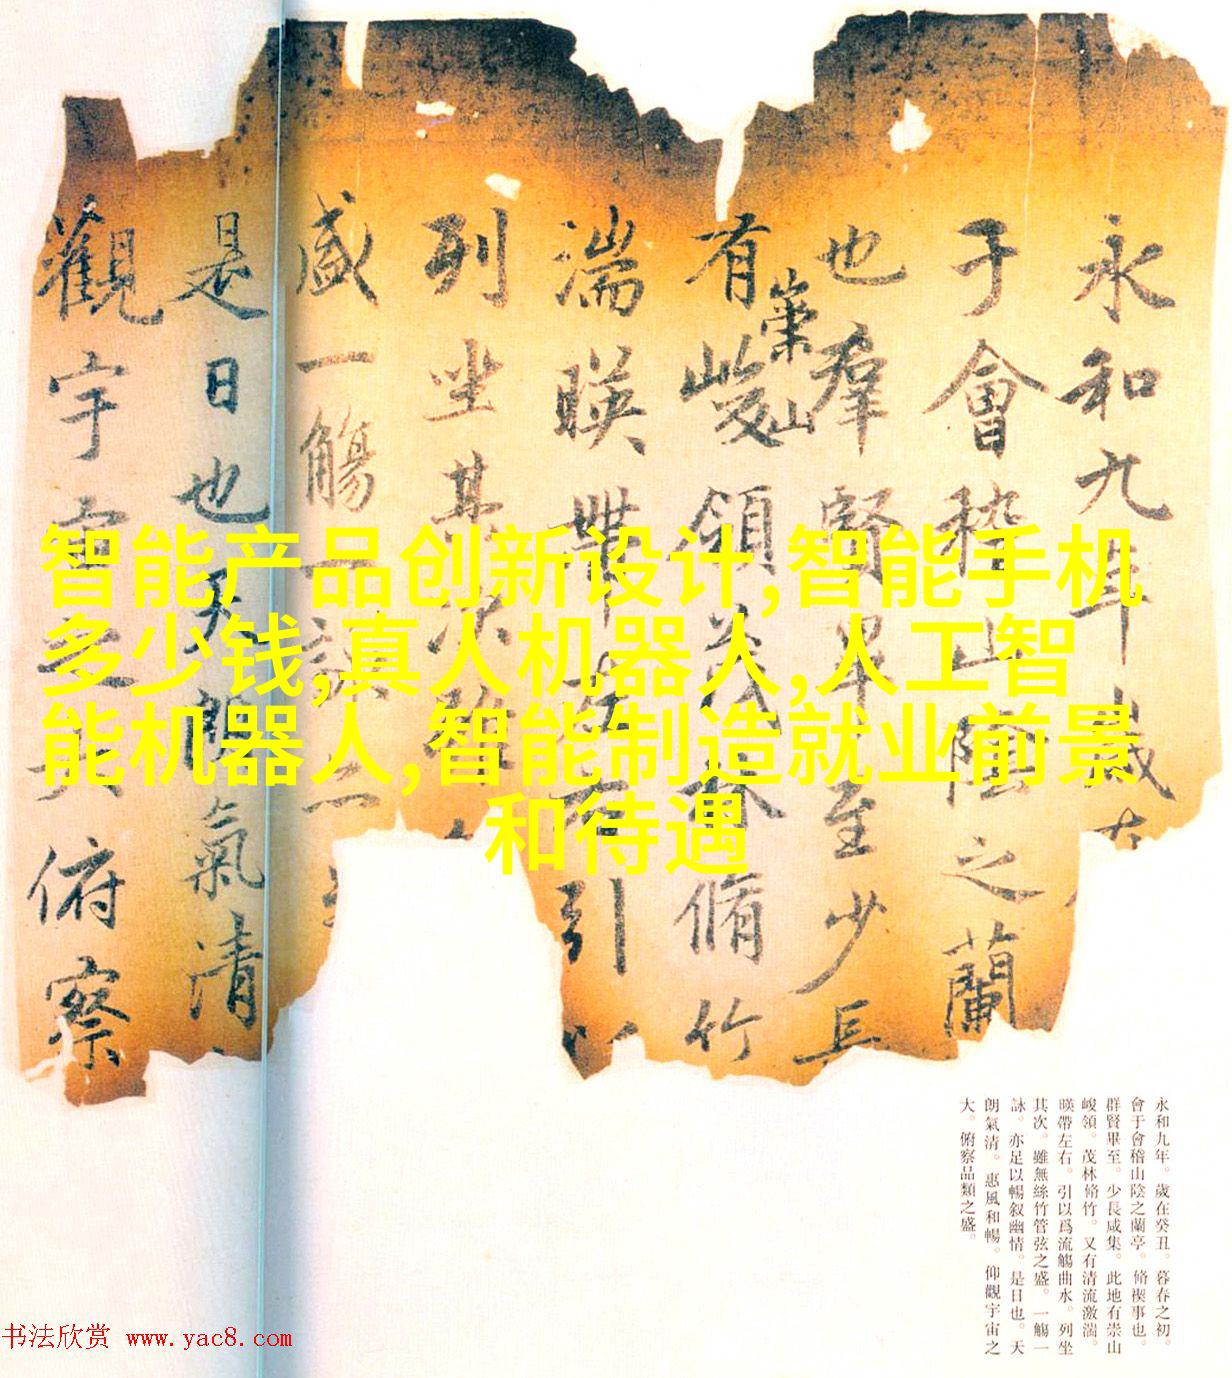 永和九年歲在
于會稽山陰之蘭
也羣賢畢至少長
有崇山峻領茂林脩竹
湍暎帶左右引以
列坐其次雖
盛一觴一詠亦
是日也天朗氣清
觀宇宙之大俯察
智能产品创新设计,智能手机
多少钱,真人机器人,人工智
能机器人,智能制造就业前景
和待遇
永和九年。歲在癸丑。暮春之初。
會于會稽山陰之蘭亭。脩禊事也。
群賢畢至。少長咸集。此地有崇山
峻領。茂林脩竹。又有清流激湍。
暎帶左右。引以爲流觴曲水。列坐
其次。雖無絲竹管弦之盛。一觴一
詠。亦足以暢叙幽情。是日也。天
朗氣清。惠風和暢。仰觀宇宙之
大。俯察品類之盛。
书法欣赏 www.yac8.com